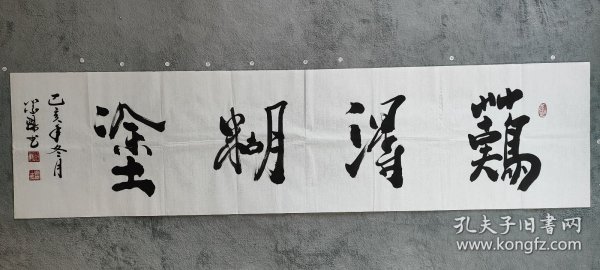 難得糊塗
己亥年冬月
孔夫子旧书网
www.kongfz.com